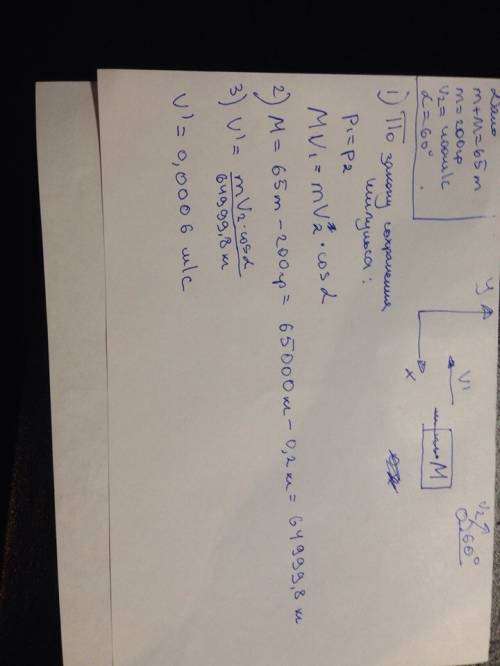 Дано
m+M=65т
m=200гр
V2=400м/с
α=60°
1) По закону сохранения
импульса:
P1=P2
MV1=mV2·cosα
2) M=65т-200гр=65000кг-0,2кг=64999,8кг
3) V'=mV2·cosα/64999,8кг
V'=0,0006 м/с
y
x
V1
M
V2
60°